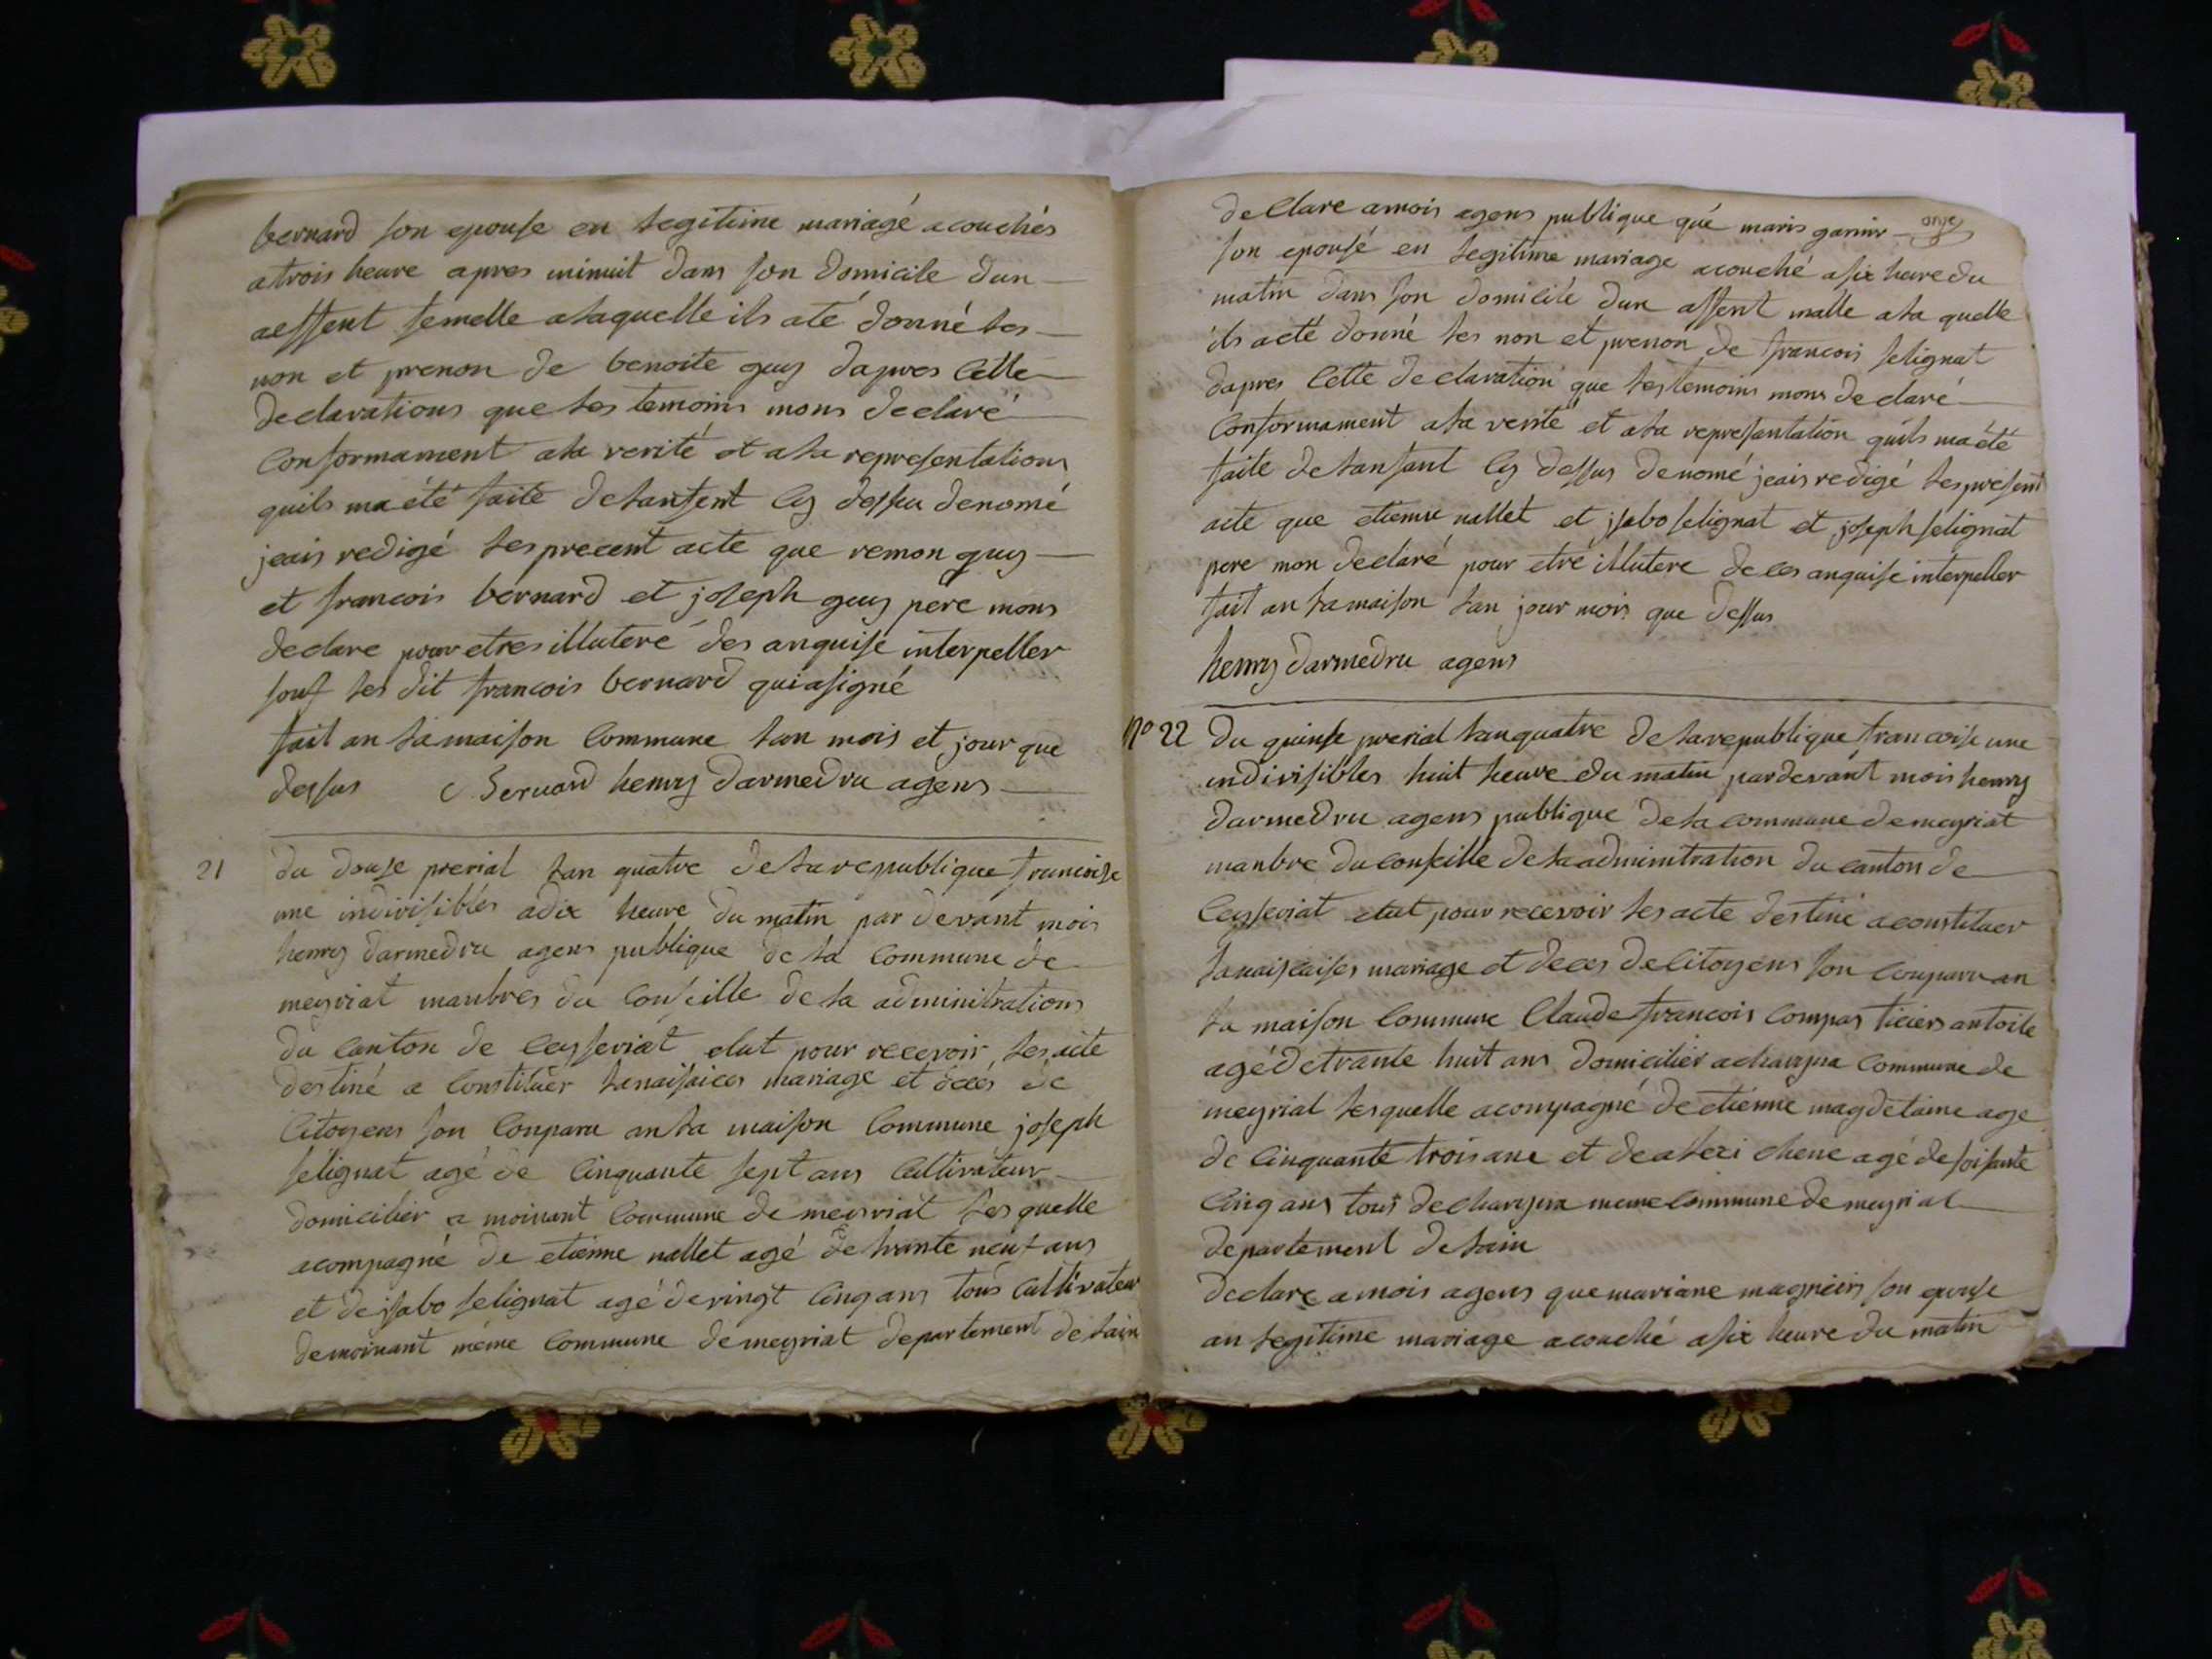 bernard son epouse en legitime mariagé acouchés
a trois heure apres minuit dans son domicile dun
aeffent femelle alaquelle ils até donné les
non et prenon de benoite guy dapres cette
declarations que les temoins mons declaré
conformament ala verité et ala representations
quils ma été faite delanfent cy dessu denomé
jeais redigé les precent acte que remon guy
et francois bernard et joseph guy pere mons
declare pour etres illuteré des anquise interpeller
souf les dit francois bernard qui asigné
fait an lamaison commune lan mois et jour que
dessus C Bernard henry darmedru agens
21 du douse prerial lan quatre de larepublique francoise
une indivisiblés adix heure du matin par devant mois
henry darmedru agens publique de la commune de
meyriat manbres du conseille de la adminitrations
du canton de ceyseriat elut pour recevoir les acte
destiné a constituer lanaisaices mariage et décés de
citoyens son conparu anla maison commune joseph
selignat agé de cinquante sept ans cultivateur
domicilier a moinant commune de meiriat lesquelle
acompagné de etienne nallet agé de trante neuf ans
et de isabo selignat agé de vingt cinq ans tous cultivateur
demoinant méme commune de meyriat departement de lain
declare amois agens publique qué maris garnir
anje
son epousé en legitime mariage acouché asix heure du
matin dans son domicilé dun affent malle ala quelle
ils aété donné les non et prenon de francois selignat
dapres cette declaration que les temoins mons declaré
conformament ala verité et ala represantation quils ma été
faite delanfant cy dessus denomé jeais redigé les present
acte que etienne nallet et jsabo selignat et joseph selignat
pere mon declaré pour etré illutere de ces anquise interpeller
fait an lamaison lan jour mois que dessus
henry darmedru agens
No 22 du quinse prerial lan quatre de larepublique francoise une
indivisibles huit heure du matin pardevant mois henry
darmedru agens publique de la commune demeyriat
manbre du conseille de la adminitration du canton de
ceyseriat elut pour recevoir les acte destiné aconstituer
lanaiscaises mariage et deces de citoyens son conparu an
la maison commune Claude francois compas ticiers antoile
agé de trante huit ans domicilier a chavgna commune de
meyriat lesquelle acompagné de etienne magdelaine age
de cinquante trois ans et de alexi chene agé de soisante
cinq ans tous de chavgna meme commune de meyriat
departement de lain
declare amois agens que mariane magnein son epouse
an legitime mariage acouché asix heure du matin